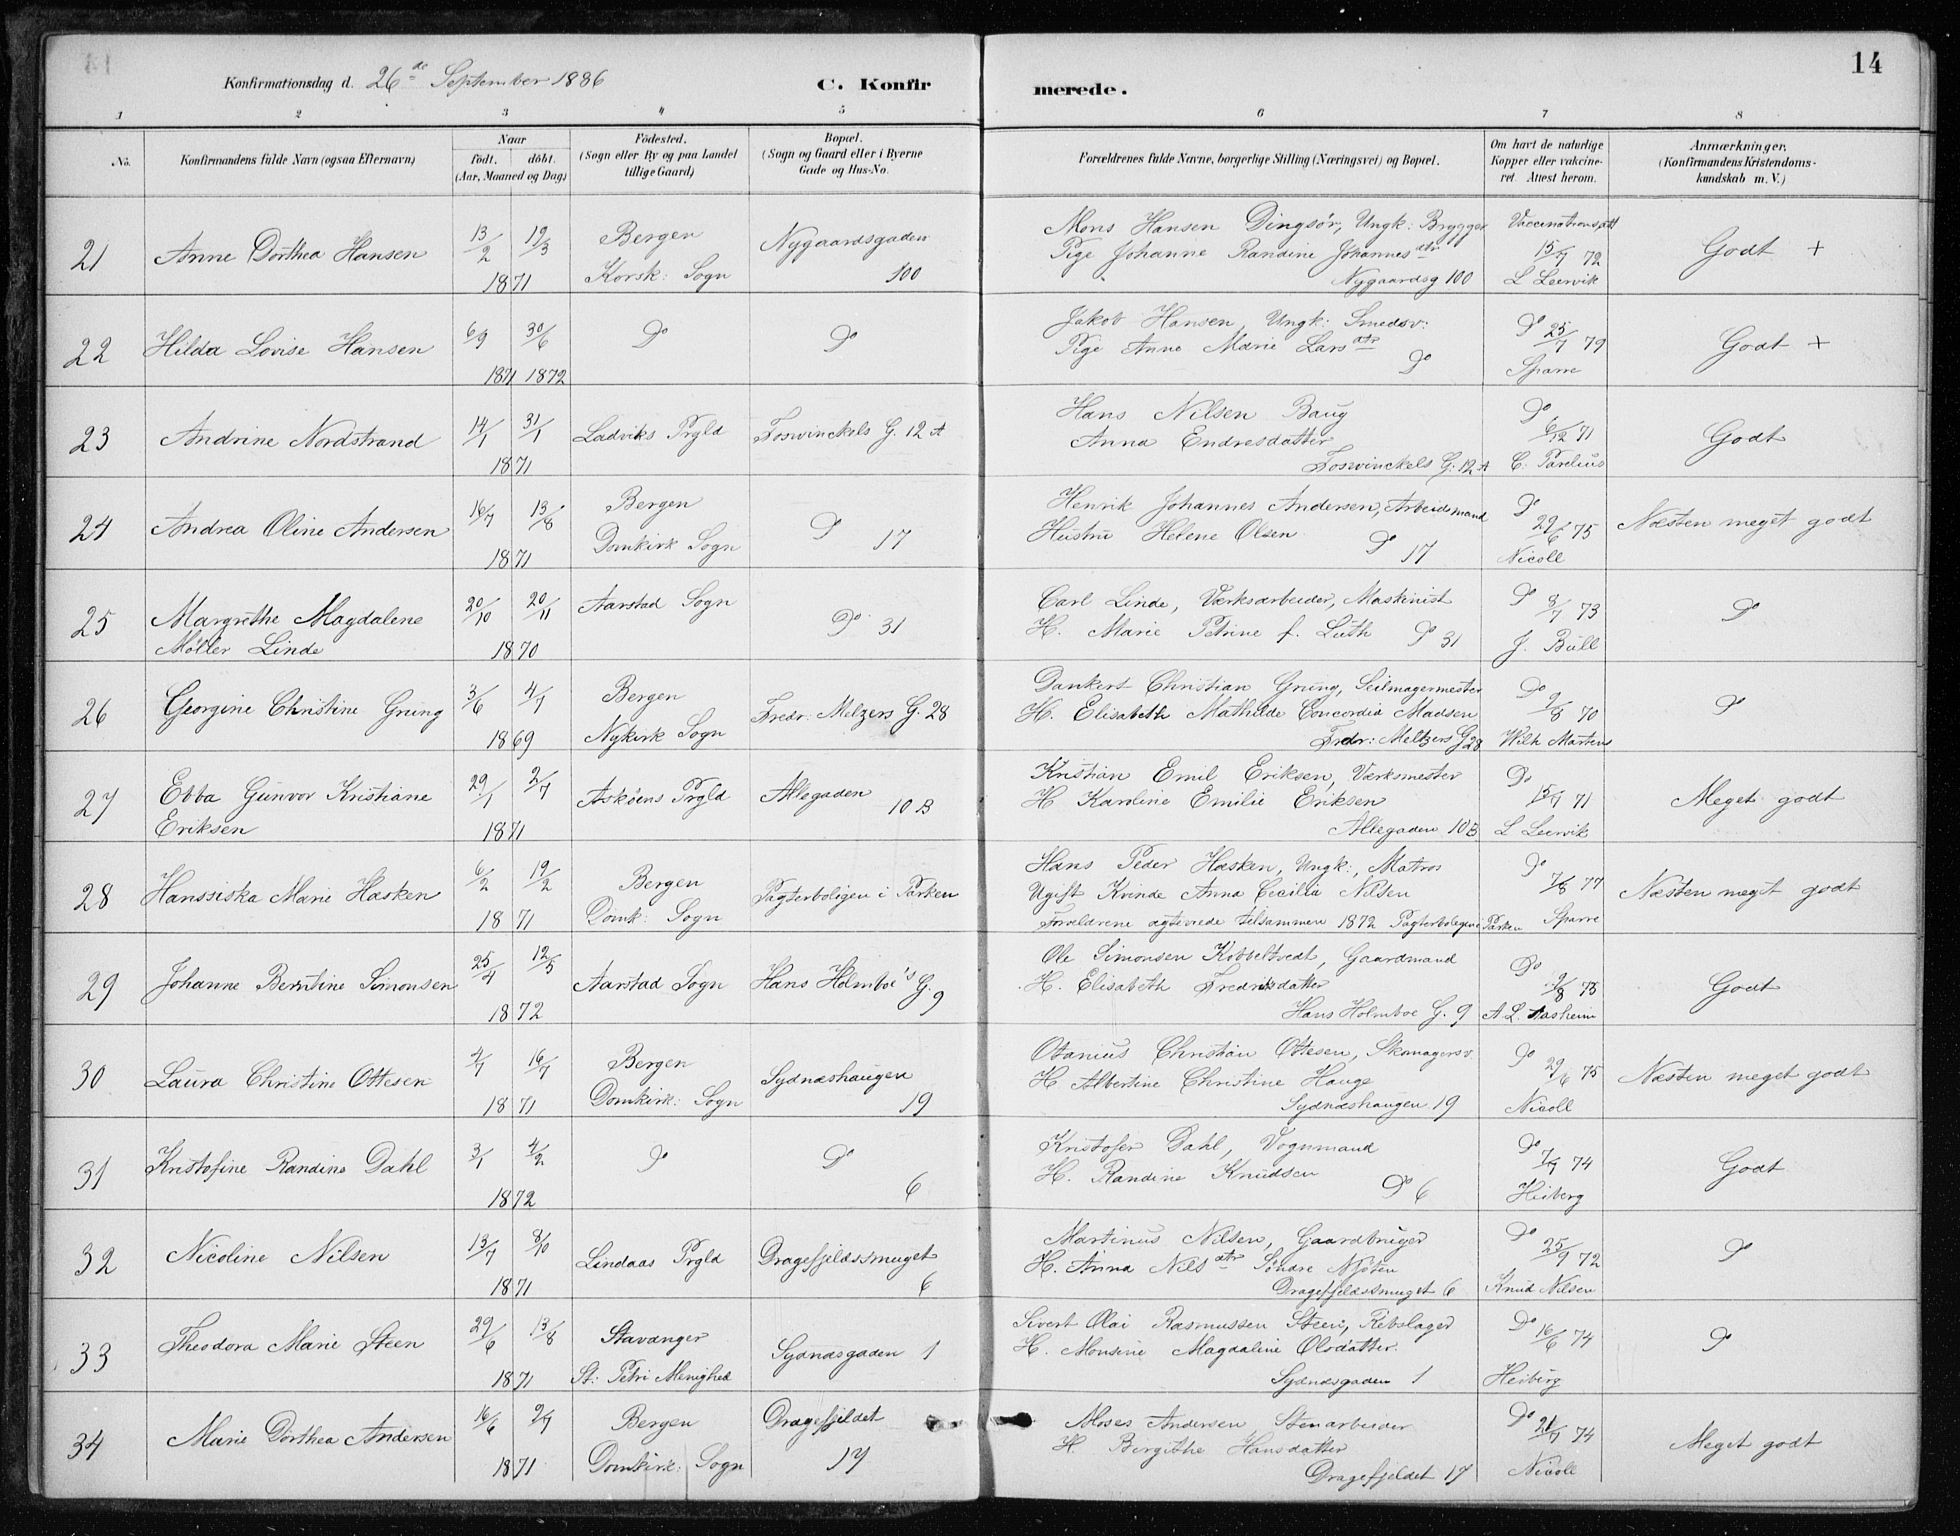 14
Konfirmationsdag d. 26de September 1886 C. Konfir merede.
1 2 3 4 5 6 7 8
No. Konfirmandens fulde Navn (ogsaa Efternavn) Naar födt. döbt. (Aar, Maaned og Dag) Födested. (Sogn eller By og paa Landet tillige Gaard) Bopæl. (Sogn og Gaard eller i Byerne Gade og Hus-No. Forældrenes fulde Navne, borgerlige Stilling (Næringsvei) og Bopæl. Om havt de naturlige Kopper eller vakcineret. Attest herom. Anmærkninger. (Konfirmandens Kristendomskundskab m. V.)
21 Anne Dorthea Hansen 13/2 19/3 1871 Bergen Korsk: Sogn Nygaardsgaden 100
Mons Hansen Dingsör, Ungk: Brygger
Pige Johanne Randine Johannesdtr
Nygaardsg 100
Vaccinationsatt 15/7 72 L Leervik
Godt +
22 Hilda Lovise Hansen 6/9 30/6 1871 1872 Do Do
Jakob Hansen Ungk: Smedsv:
Pige Anne Marie Larsdtr
Do
Do 25/7 79 Sparre
Godt +
23 Andrine Nordstrand 14/1 31/1 1871 Ladviks Prgld Foswinckels G. 12 A
Hans Nilsen Baug
Anna Endresdatter
Foswinckels G. 12 A
Do 6/12 71 C. Parelius
Godt
24 Andrea Oline Andersen 16/7 13/8 1871 Bergen Domkirk Sogn Do 17
Henrik Johannes Andersen, Arbeidsmand
Hustru Helene Olsen
Do 17
Do 29/6 75 Nicoll
Næsten meget godt
25 Margrethe Magdalene Möller Linde 20/10 20/11 1870 Aarstad Sogn Do 31
Carl Linde, Værksarbeider, Maskinist
H. Marie Petrine f. Luth Do 31
Do 8/7 73 J. Bull
Do
26 Georgine Christine Grung 3/6 4/7 1869 Bergen Nykirk Sogn Fredr: Melzers G. 28
Dankert Christian Grung, Seilmagermester
H. Elisabeth Mathilde Concordia Madsen
Fredr: Meltzers G 28
Do 9/8 70 Wilh Martens
Do
27 Ebba Gunvor Kristiane Eriksen 29/1 2/7 1871 Asköens Prgld Allegaden 10 B
Kristian Emil Eriksen, Værksmester
H. Karoline Emilie Eriksen
Allegaden 10 B
Do 15/7 71 L Leervik
Meget godt
28 Hanssiska Marie Hasken 6/2 19/2 1871 Bergen Domk: Sogn Pagterboligen i Parken
Hans Peder Hasken, Ungk:, Matros
Ugift Kvinde Anna Cecilia Nilsen
Forældrene ægteviede tilsammen 1872 Pagterboligen i Parken
Do 7/8 77 Sparre
Næsten meget godt
29 Johanne Berntine Simonsen 25/4 12/5 1872 Aarstad Sogn Hans Holmboe's G. 9
Ole Simonsen Kobbeltvedt, Gaardmand
H. Elisabeth Fredriksdatter
Hans Holmboe G. 9
Do 9/8 75 A. L. Aasheim
Godt
30 Laura Christine Ottesen 4/7 16/7 1871 Bergen Domkirk: Sogn Sydnæshaugen 19
Otanius Christian Ottesen, Skomagersv.
H. Albertine Christine Hauge
Sydnæshaugen 19
Do 29/6 75 Nicoll
Næsten meget godt
31 Kristofine Randine Dahl 3/1 4/2 1872 Do Do 6
Kristofer Dahl, Vognmand
H. Randine Knudsen
Do 6
Do 7/7 74 Heiberg
Godt
32 Nicoline Nilsen 13/7 8/10 1871 Lindaas Prgld Dragefjeldssmuget 6
Martinus Nilsen, Gaardbruger
H. Anna Nilsdtr Söndre Njöten
Dragefjeldssmuget 6
Do 25/9 72 Knud Nilsen
Do
33 Theodora Marie Steen 29/6 13/8 1871 Stavanger St: Petri Menighed Sydnæsgaden 1
Sivert Olai Rasmussen Steen, Rebslager
H. Monsine Magdaline Olsdatter.
Sydnæsgaden 1
Do 16/6 74 Heiberg
Do
34 Marie Dorthea Andersen 16/6 9/7 1871 Bergen Domkirk: Sogn Dragefjeldet 17
Moses Andersen Stenarbeider
H Bergithe Hansdatter
Dragefjeldet 17
Do 21/7 74 Nicoll
Meget godt